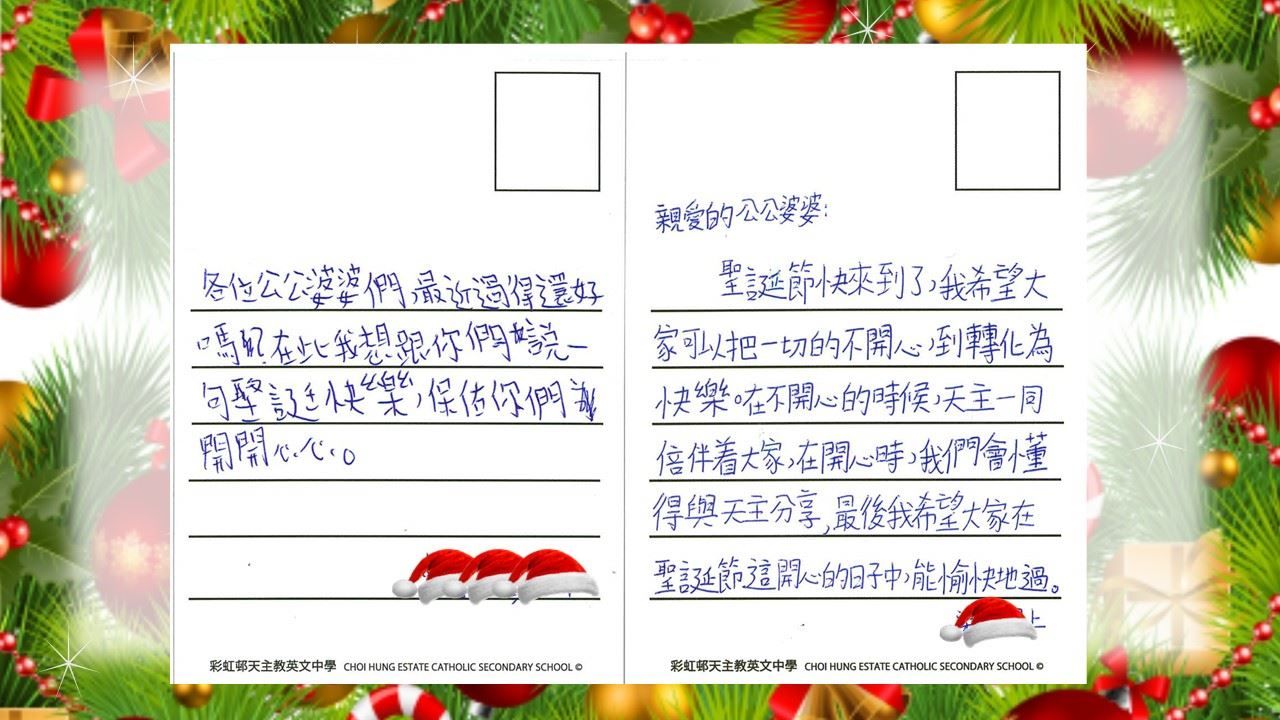 各位公公婆婆們,最近過得還好
嗎?在此我想跟你們說一
句聖誕快樂,保佑你們
開開心心。
彩虹邨天主教英文中學 CHOI HUNG ESTATE CATHOLIC SECONDARY SCHOOL ©
親愛的公公婆婆:
聖誕節快來到了,我希望大
家可以把一切的不開心,到轉化為
快樂。在不開心的時候,天主一同
倍伴着大家,在開心時,我們會懂
得與天主分享,最後我希望大家在
聖誕節這開心的日子中,能愉快地過。
上
彩虹邨天主教英文中學 CHOI HUNG ESTATE CATHOLIC SECONDARY SCHOOL ©